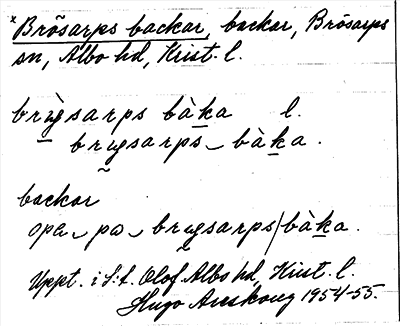 * Brösarps backar, backar, Brösarps
sn, Albo hd, Krist. l.
brỳsarps bàka l.
brysarps bàka.
backar
opa pa brysarps/bàka.
Uppt. i S:t. Olof Albo hd, Krist. l.
Hugo Areskoug 1954-55.